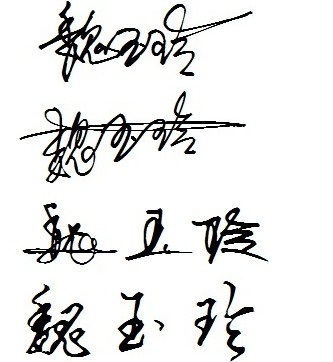 魏玉玲
魏玉玲
魏玉玲
魏玉玲